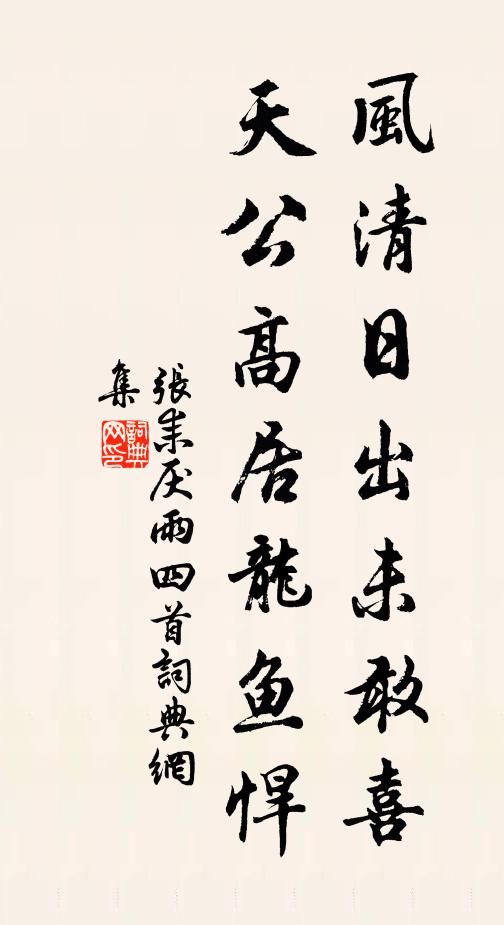 風清日出未敢喜
天公高居龍魚悍
張耒厌雨四首詞典網
集
詞典
网印